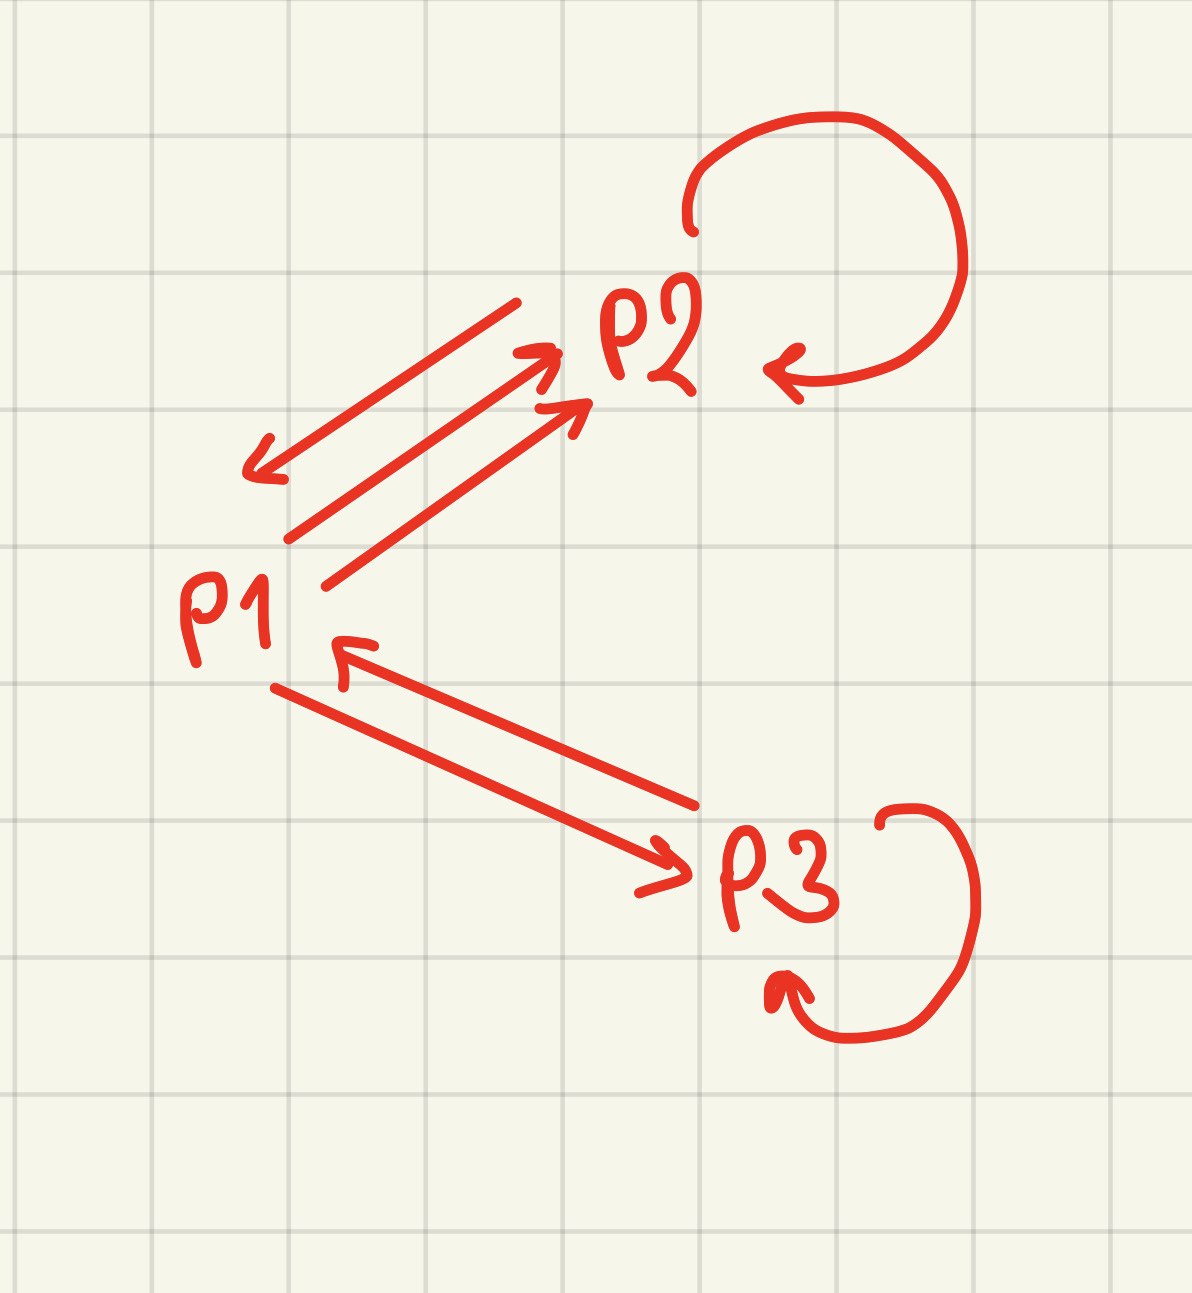 P2
P1
P3